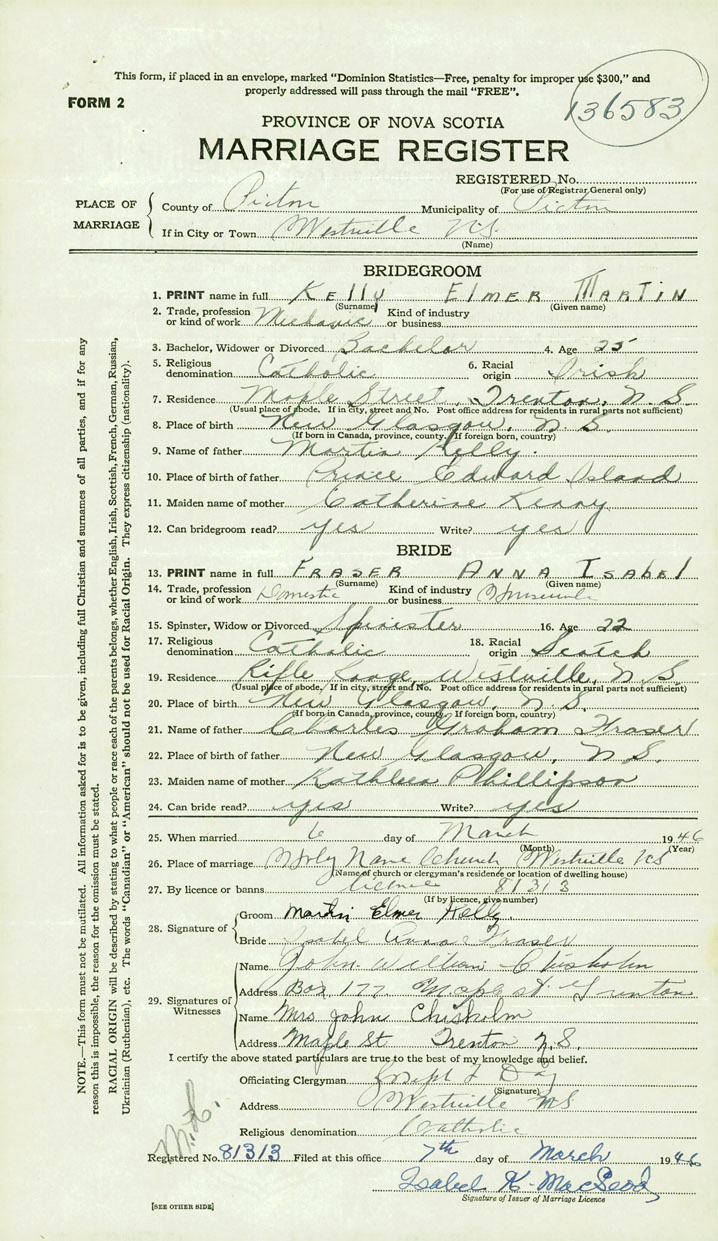 This form, if placed in an envelope, marked "Dominion Statistics—Free, penalty for improper use $300," and
properly addressed will pass through the mail "FREE".
FORM 2
136583
PROVINCE OF NOVA SCOTIA
MARRIAGE REGISTER
REGISTERED No.
(For use of Registrar General only)
PLACE OF MARRIAGE
County of Pictou Municipality of Pictou
If in City or Town Westville N.S.
(Name)
BRIDEGROOM
1. PRINT name in full KELLY ELMER MARTIN
(Surname) (Given name)
2. Trade, profession or kind of work Mechanic Kind of industry or business
3. Bachelor, Widower or Divorced Bachelor 4. Age 25
5. Religious denomination Catholic 6. Racial origin Irish
7. Residence Maple Street, Trenton, N.S.
(Usual place of abode. If in city, street and No. Post office address for residents in rural parts not sufficient)
8. Place of birth New Glasgow, N.S.
(If born in Canada, province, county. If foreign born, country)
9. Name of father Martin Kelly.
10. Place of birth of father Prince Edward Island
11. Maiden name of mother Catherine Kenny
12. Can bridegroom read? yes Write? yes
BRIDE
13. PRINT name in full FRASER ANNA ISABEL
(Surname) (Given name)
14. Trade, profession or kind of work Domestic Kind of industry or business
15. Spinster, Widow or Divorced Spinster 16. Age 22
17. Religious denomination Catholic 18. Racial origin Scotch
19. Residence Rifle Range, Westville, N.S.
(Usual place of abode. If in city, street and No. Post office address for residents in rural parts not sufficient)
20. Place of birth New Glasgow, N.S.
(If born in Canada, province, county. If foreign born, country)
21. Name of father Charles Graham Fraser
22. Place of birth of father New Glasgow, N.S.
23. Maiden name of mother Kathleen Phillipson
24. Can bride read? yes Write? yes
25. When married 6 day of March 1946
(Month) (Year)
26. Place of marriage Holy Name Church Westville NS
(Name of church or clergyman's residence or location of dwelling house)
27. By licence or banns licence 81313
(If by licence, give number)
28. Signature of
Groom Martin Elmer Kelly.
Bride Isabel Anna Fraser
29. Signatures of Witnesses
Name John William Chisholm
Address Box 177 Maple St Trenton
Name Mrs John Chisholm
Address Maple St Trenton N.S.
I certify the above stated particulars are true to the best of my knowledge and belief.
Officiating Clergyman Joseph Day
(Signature)
Address Westville NS
Religious denomination Catholic
Registered No. 81313 Filed at this office 7th day of March 1946
Isabel K. MacLeod
Signature of Issuer of Marriage Licence
[SEE OTHER SIDE]
NOTE.—This form must not be mutilated. All information asked for is to be given, including full Christian and surnames of all parties, and if for any
reason this is impossible, the reason for the omission must be stated.
RACIAL ORIGIN will be described by stating to what people or race each of the parents belongs, whether English, Irish, Scottish, French, German, Russian,
Ukrainian (Ruthenian), etc. The words "Canadian" or "American" should not be used for Racial Origin. They express citizenship (nationality).